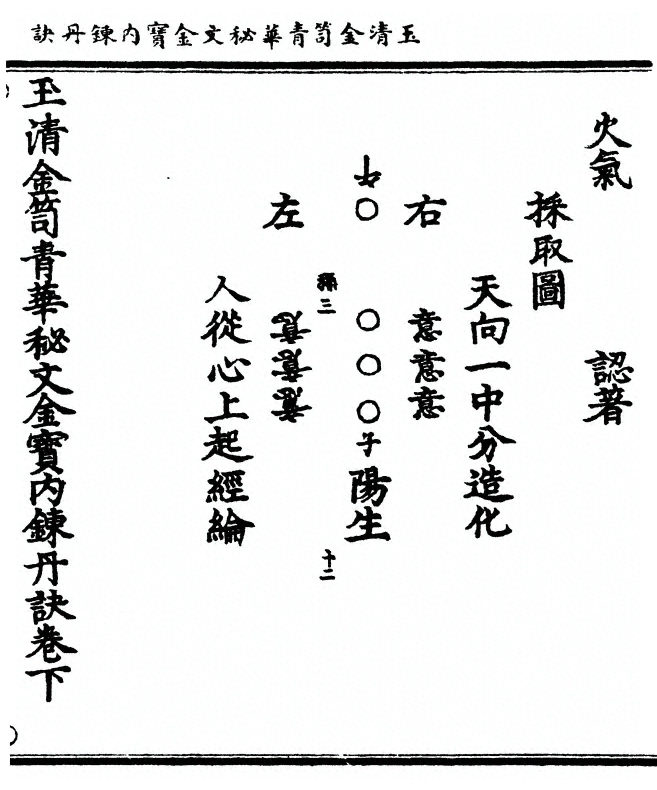 玉清金笥青華秘文金寶內鍊丹訣
火氣 認著
採取圖
天向一中分造化
右 意意意
○ ○○○子陽生
三 十二
左 意意意
人從心上起經綸
玉清金笥青華秘文金寶內鍊丹訣卷下